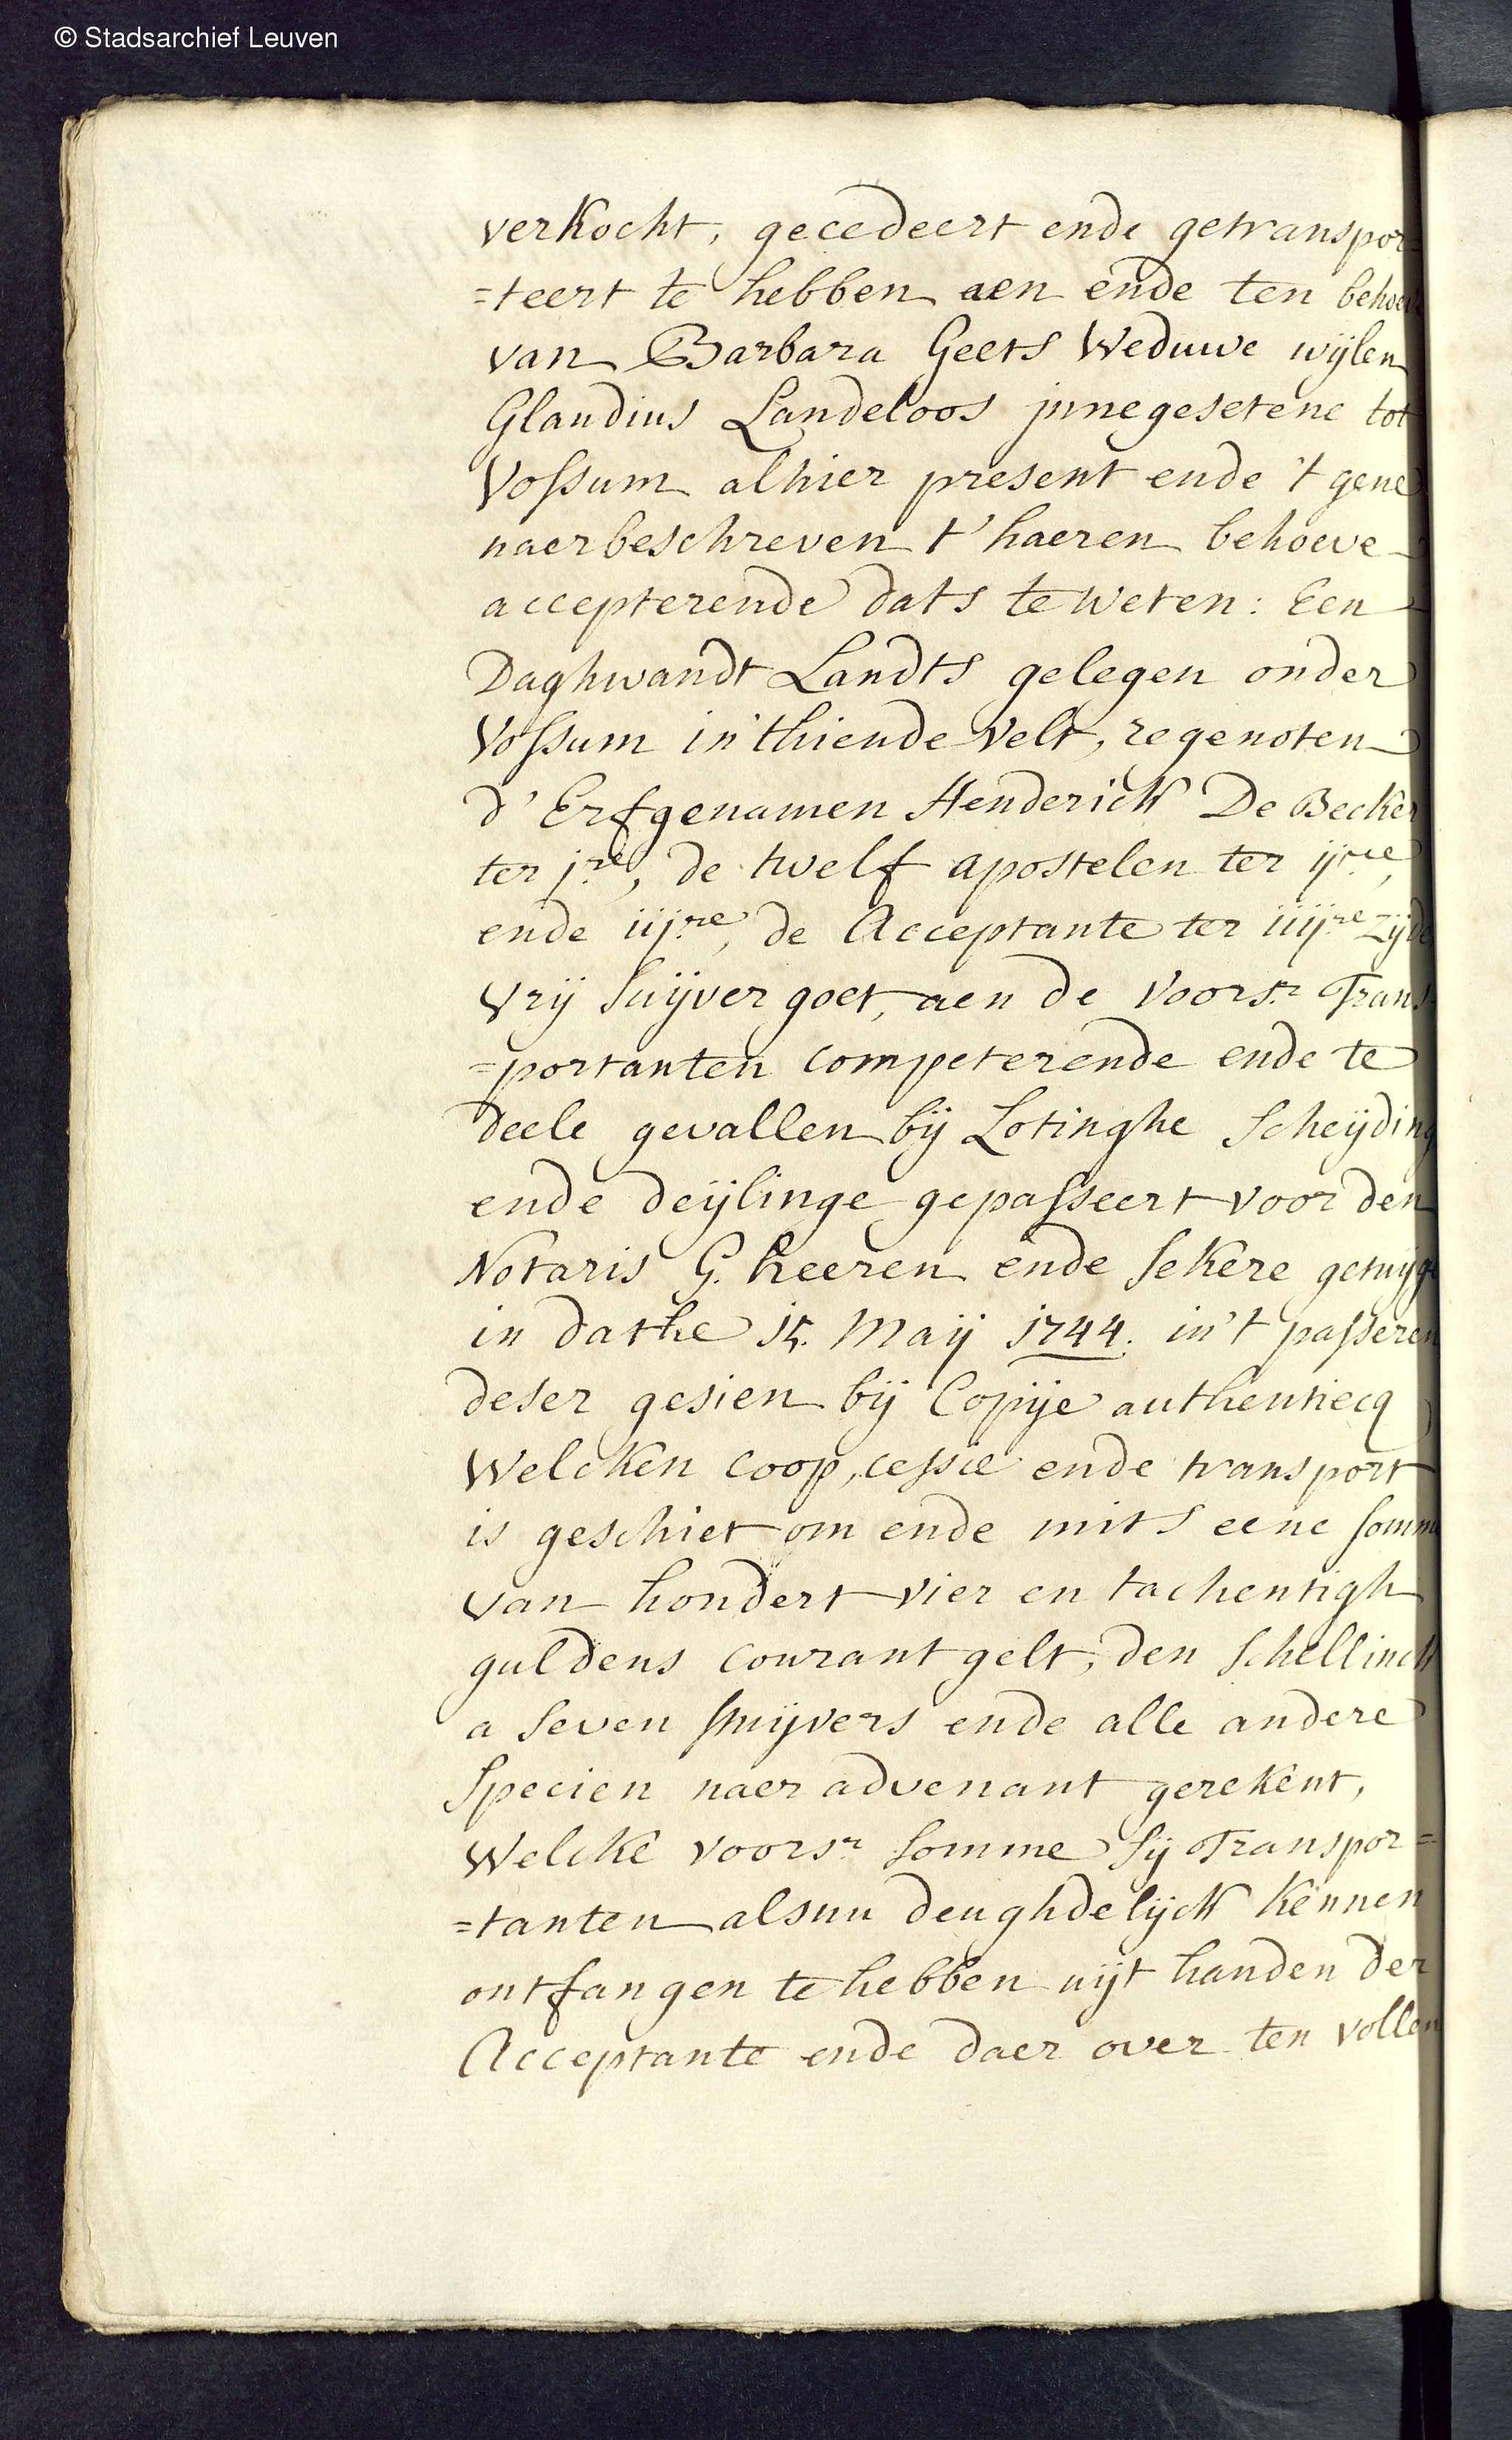 © Stadsarchief Leuven
verkocht, gecedeert ende getranspor=
=teert te hebben aen ende ten behoeve
van Barbara Geets Weduwe wijlen
Glaudius Landeloos jnnegesetene tot
Vossum alhier present ende 't gene
naerbeschreven t'haeren behoeve
accepterende dats te weten: Een
Daghwandt Landts gelegen onder
Vossum in'thiende velt, regenoten
d'Erfgenamen Henderick De Becker
ter j.re, de twelf apostelen ter ij.re,
ende iij.re, de Acceptante ter iiij.re zijde
vrij suijver goet, aen de voors.r Trans=
=portanten competerende ende te
deele gevallen bij Lotinghe scheijding
ende deijlinge gepasseert voor den
Notaris G. heeren ende sekere getuijge
in dathe 15. Maij 1744. in't passeren
deser gesien bij Copije authentiecq
Welcken coop, cessie ende transport
is geschiet om ende mits eene somme
van hondert vier en tachentigh
guldens courant gelt, den schellinck
a seven stuijvers ende alle andere
specien naer advenant gerekent,
Welcke voors.r somme sij Transpor=
=tanten alsnu deughdelijck kennen
ontfangen te hebben uijt handen der
Acceptante ende daer over ten vollen